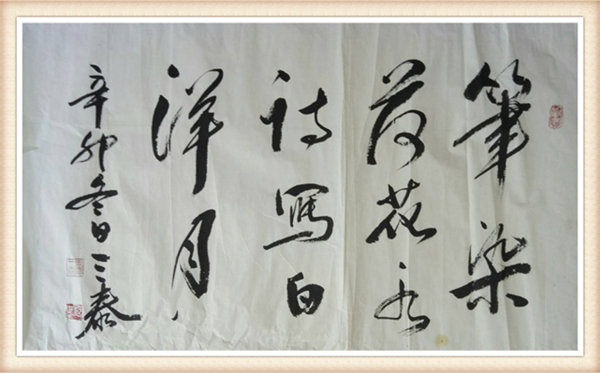 筆染
荷花水
詩寫白
洋月
辛卯冬日三泰